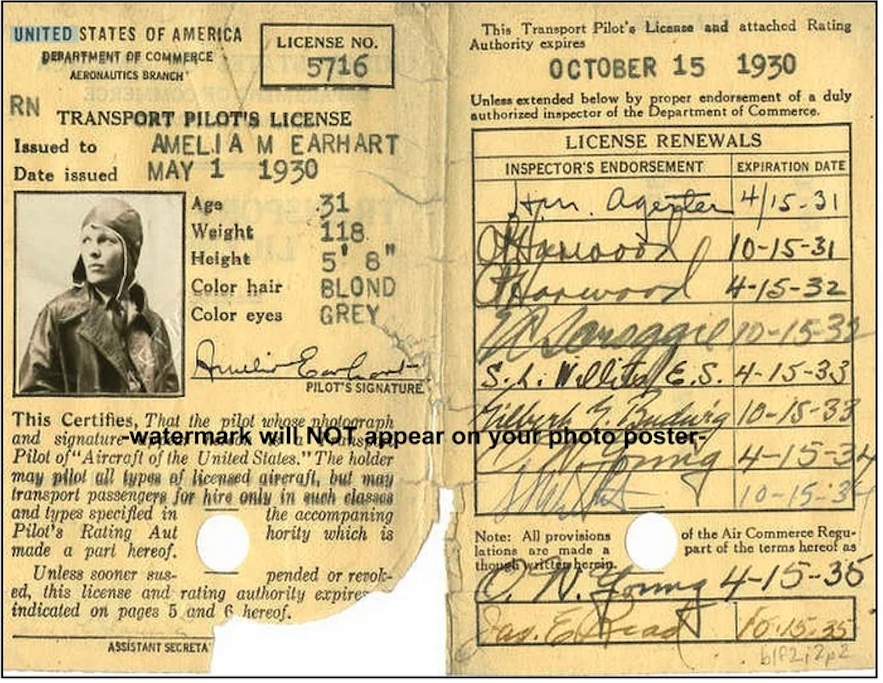 UNITED STATES OF AMERICA
DEPARTMENT OF COMMERCE
AERONAUTICS BRANCH
LICENSE NO.
5716
RN
TRANSPORT PILOT'S LICENSE
Issued to AMELIA M EARHART
Date issued MAY 1 1930
Age 31
Weight 118
Height 5' 8"
Color hair BLOND
Color eyes GREY
Amelia Earhart
PILOT'S SIGNATURE
This Certifies, That the pilot whose photograph
and signature is a Transport
Pilot of "Aircraft of the United States." The holder
may pilot all types of licensed aircraft, but may
transport passengers for hire only in such classes
and types specified in the accompaning
Pilot's Rating Aut hority which is
made a part hereof.
Unless sooner sus- pended or revok-
ed, this license and rating authority expires
indicated on pages 5 and 6 hereof.
ASSISTANT SECRETA
-watermark will NOT appear on your photo poster-
This Transport Pilot's License and attached Rating
Authority expires
OCTOBER 15 1930
Unless extended below by proper endorsement of a duly
authorized inspector of the Department of Commerce.
LICENSE RENEWALS
INSPECTOR'S ENDORSEMENT EXPIRATION DATE
4/15-31
Harwood 10-15-31
Harwood 4-15-32
10-15-32
S. L. Willits E.S. 4-15-33
Gilbert G. Budwig 10-15-33
O. N. Young 4-15-34
10-15-34
Note: All provisions of the Air Commerce Regu-
lations are made a part of the terms hereof as
though written herein.
O. N. Young 4-15-35
Jas. E. Read 10-15-35